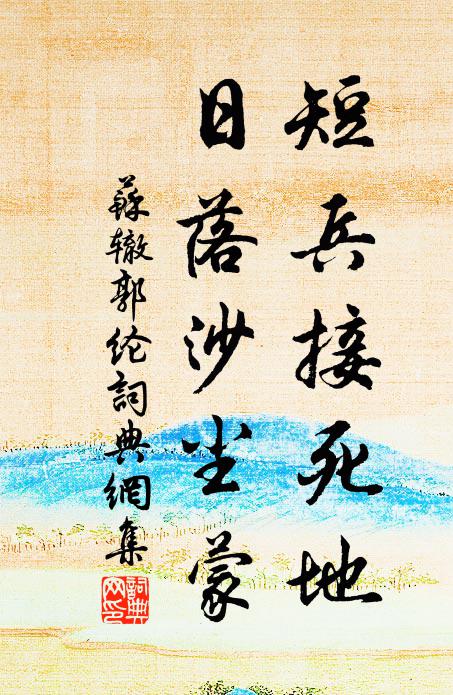 短兵接死地
日落沙尘蒙
蘇辙郭纶詞典網集
詞典